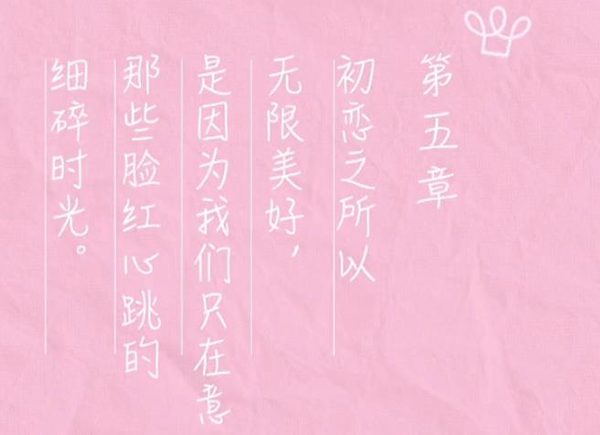 第五章
初恋之所以
无限美好，
是因为我们只在意
那些脸红心跳的
细碎时光。